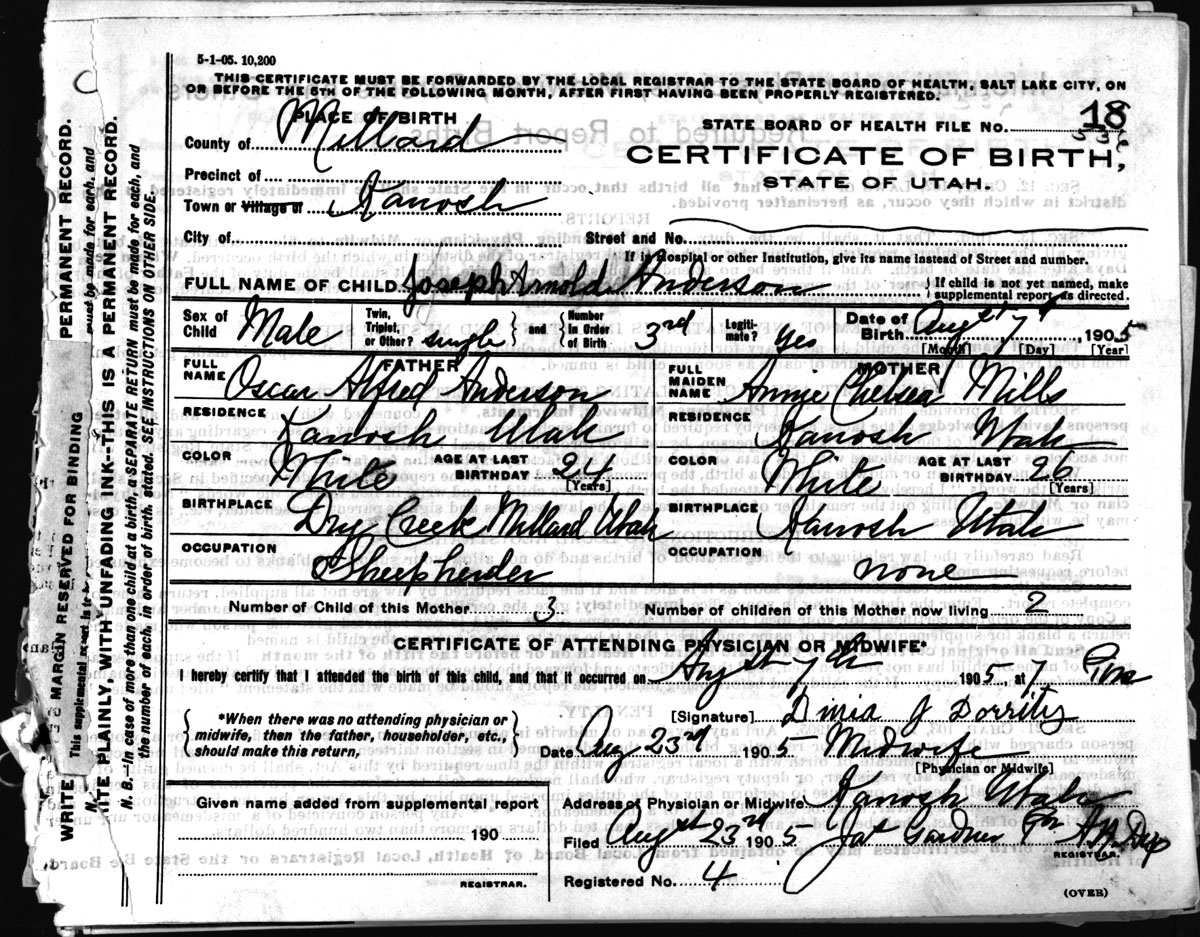 5-1-05. 10,200
THIS CERTIFICATE MUST BE FORWARDED BY THE LOCAL REGISTRAR TO THE STATE BOARD OF HEALTH, SALT LAKE CITY, ON
OR BEFORE THE 5TH OF THE FOLLOWING MONTH, AFTER FIRST HAVING BEEN PROPERLY REGISTERED.
PLACE OF BIRTH
County of Millard
STATE BOARD OF HEALTH FILE NO. 18
536
CERTIFICATE OF BIRTH,
STATE OF UTAH.
Precinct of
Town or Village of Kanosh
City of Street and No.
If in Hospital or other Institution, give its name instead of Street and number.
FULL NAME OF CHILD Joseph Arnold Anderson { If child is not yet named, make supplemental report, as directed.
Sex of Child Male Twin, Triplet, or Other? single } and { Number in Order of Birth 3rd Legiti-mate? Yes Date of Birth Augst 7th 1905
[Month] [Day] [Year]
FATHER
FULL NAME Oscar Alfred Anderson
RESIDENCE Kanosh Utah
COLOR White AGE AT LAST BIRTHDAY 24 [Years]
BIRTHPLACE Dry Creek Millard Utah
OCCUPATION Sheepherder
MOTHER
FULL MAIDEN NAME Annie Chelsea Mills
RESIDENCE Kanosh Utah
COLOR White AGE AT LAST BIRTHDAY 26 [Years]
BIRTHPLACE Kanosh Utah
OCCUPATION none
Number of Child of this Mother 3 Number of children of this Mother now living 2
CERTIFICATE OF ATTENDING PHYSICIAN OR MIDWIFE*
I hereby certify that I attended the birth of this child, and that it occurred on Augst 7th 1905, at 7 Pm
{ *When there was no attending physician or midwife, then the father, householder, etc., should make this return. }
[Signature] J Dorrity
Date Aug 23rd 1905 Midwife
[Physician or Midwife]
Given name added from supplemental report
190
REGISTRAR.
Address of Physician or Midwife Kanosh Utah
Filed Augst 23rd 1905 Gardner
REGISTRAR.
Registered No. 4
(OVER)
MARGIN RESERVED FOR BINDING
WRITE PLAINLY WITH UNFADING INK--THIS IS A PERMANENT RECORD.
N. B.--In case of more than one child at a birth, a SEPARATE RETURN must be made for each, and
the number of each, in order of birth, stated. SEE INSTRUCTIONS ON OTHER SIDE.
PERMANENT RECORD.
must be made for each, and